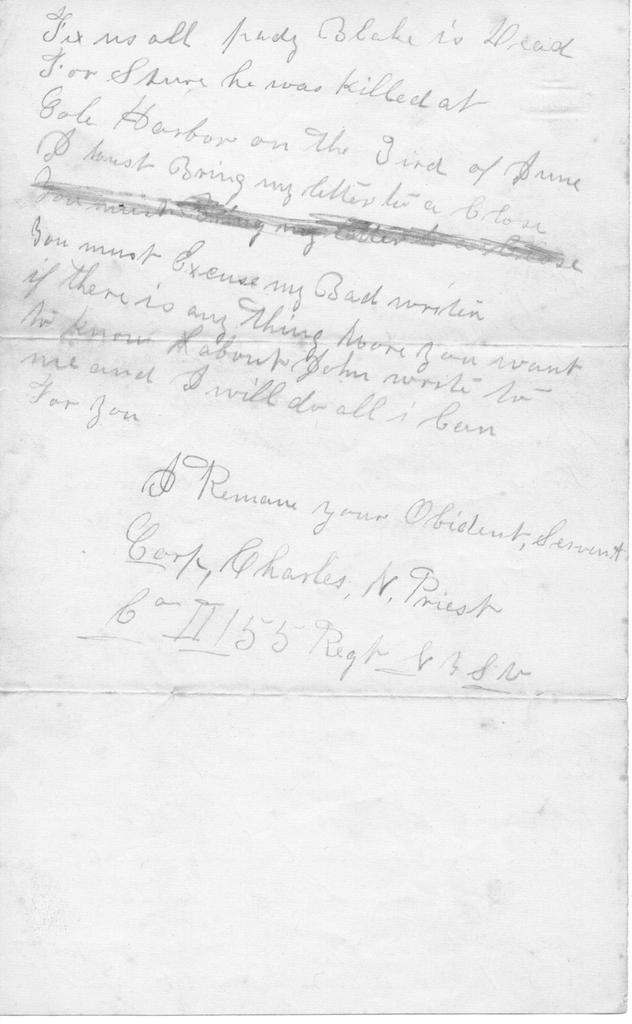 Fix us all pady Blake is Dead
For Shure he was killed at
Gole Harbor on the 3ird of June
I must Bring my letter to a Close
You must Bring my letter to a Close
You must Excuse my Bad writen
if there is any thing more you want
to know about John write to
me and I will do all i Can
For you
I Remane your Obident, Servent
Corp, Charles, N. Priest
Co II 155 Regt N Y S V